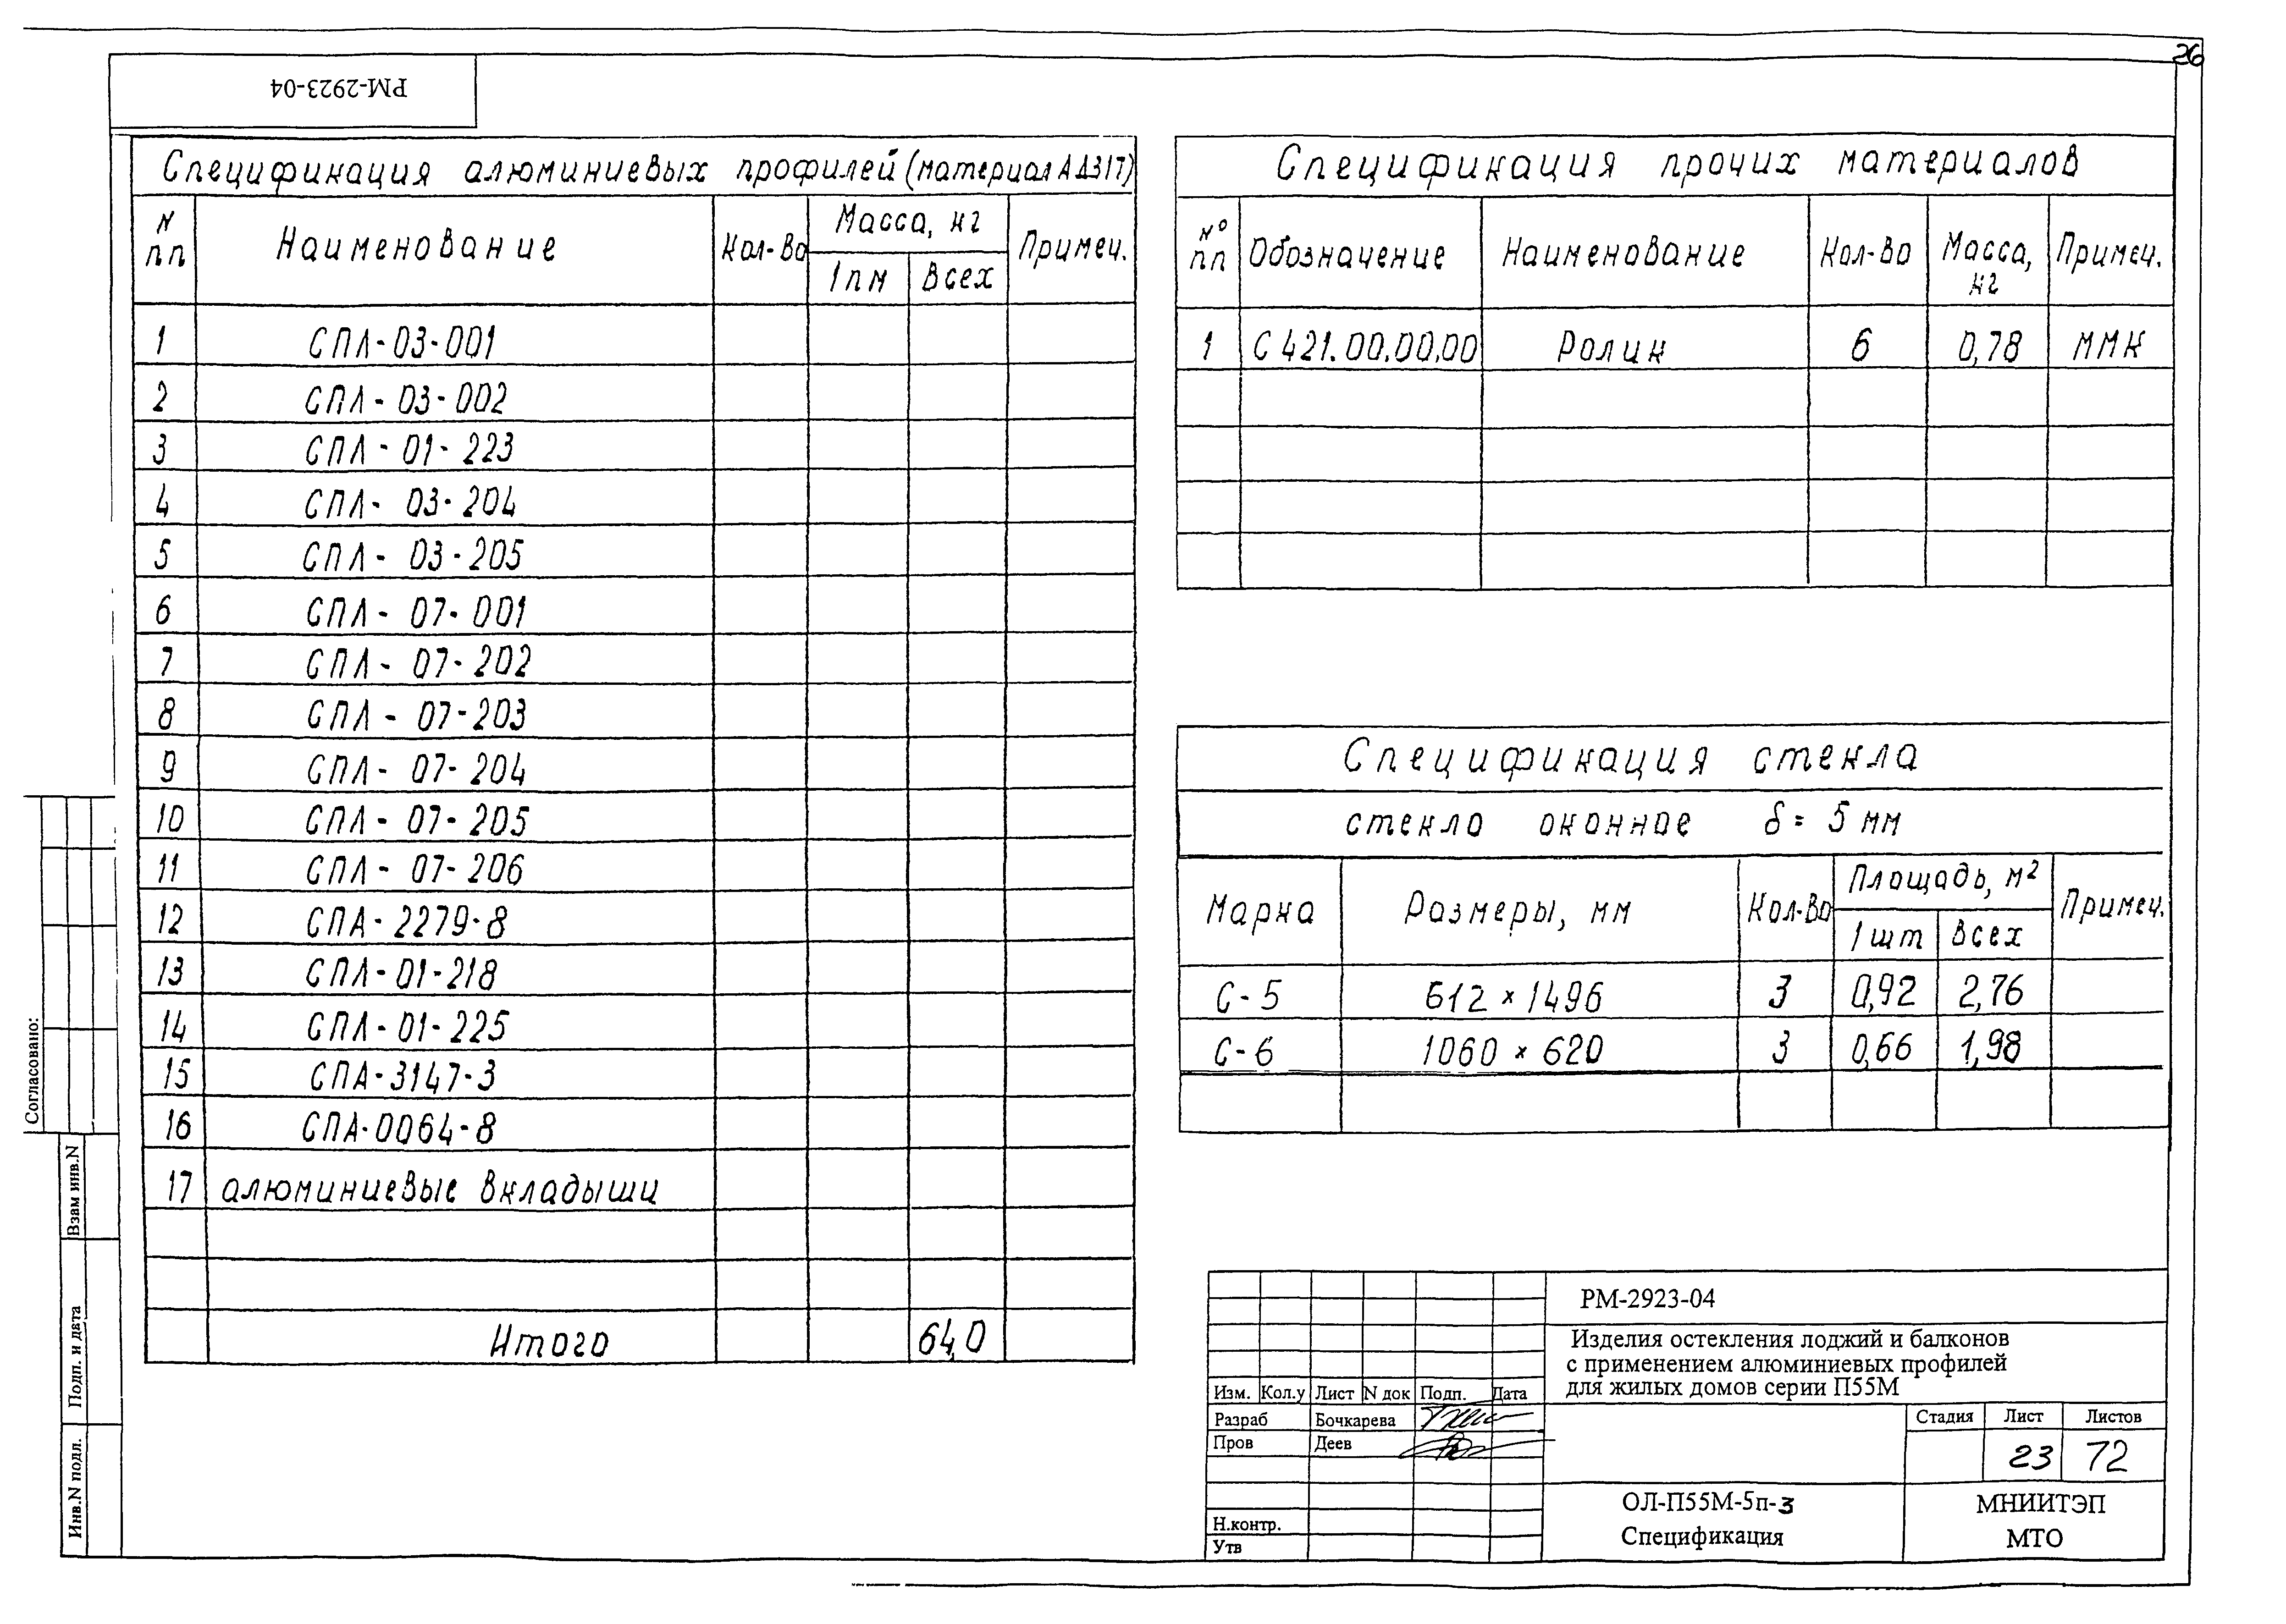 26
РМ-2923-04
Спецификация алюминиевых профилей (материал АД31Т)
N пп Наименование Кол-во Масса, кг Примеч.
1пм Всех
1 СПЛ-03-001
2 СПЛ-03-002
3 СПЛ-01-223
4 СПЛ-03-204
5 СПЛ-03-205
6 СПЛ-07-001
7 СПЛ-07-202
8 СПЛ-07-203
9 СПЛ-07-204
10 СПЛ-07-205
11 СПЛ-07-206
12 СПА-2279-8
13 СПЛ-01-218
14 СПЛ-01-225
15 СПА-3147-3
16 СПА-0064-8
17 алюминиевые вкладыши
Итого 64,0
Спецификация прочих материалов
№ пп Обозначение Наименование Кол-во Масса, кг Примеч.
1 С421.00.00.00 Ролик 6 0,78 ММК
Спецификация стекла
стекло оконное δ = 5 мм
Марка Размеры, мм Кол-во Площадь, м2 Примеч.
1 шт Всех
С-5 612 × 1496 3 0,92 2,76
С-6 1060 × 620 3 0,66 1,98
Согласовано:
Взам инв.N
Подп. и дата
Инв.N подл.
РМ-2923-04
Изделия остекления лоджий и балконов
с применением алюминиевых профилей
для жилых домов серии П55М
Изм. Кол.у Лист N док Подп. Дата
Разраб Бочкарева
Пров Деев
Н.контр.
Утв
Стадия Лист Листов
23 72
ОЛ-П55М-5п-3
Спецификация
МНИИТЭП
МТО